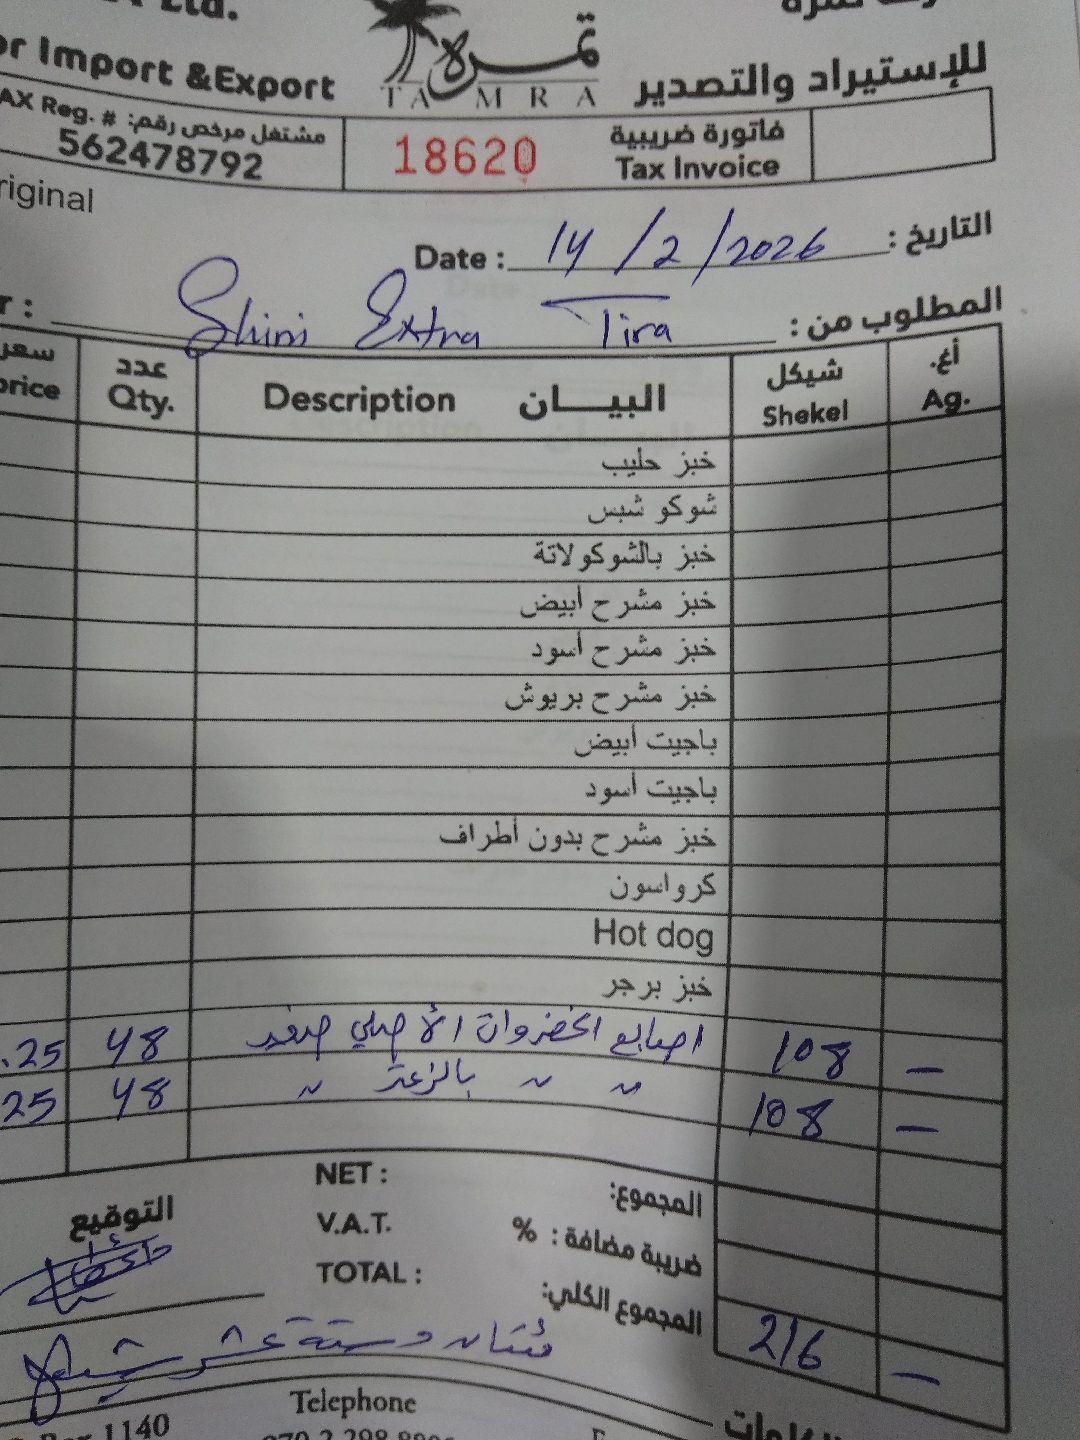 Ltd.
or Import &Export
تمرة
TAMRA
للإستيراد والتصدير
AX Reg. # :مشتغل مرخص رقم
562478792
18620
فاتورة ضريبية
Tax Invoice
riginal
Date : 14/2/2026 التاريخ :
r : Shini Extra Tira المطلوب من :
سعر عدد البيـــان شيكل أغ.
price Qty. Description Shekel Ag.
خبز حليب
شوكو شبس
خبز بالشوكولاتة
خبز مشرح أبيض
خبز مشرح أسود
خبز مشرح بريوش
باجيت أبيض
باجيت أسود
خبز مشرح بدون أطراف
كرواسون
Hot dog
خبز برجر
.25 48 اصابع الخضروات الأصلي صغير 108 —
25 48 〃 〃 بالزعتر 〃 108 —
NET : المجموع:
V.A.T. % ضريبة مضافة :
TOTAL : المجموع الكلي: 216 —
التوقيع
مئتان وستة عشر شيكل
Telephone
Box 1140